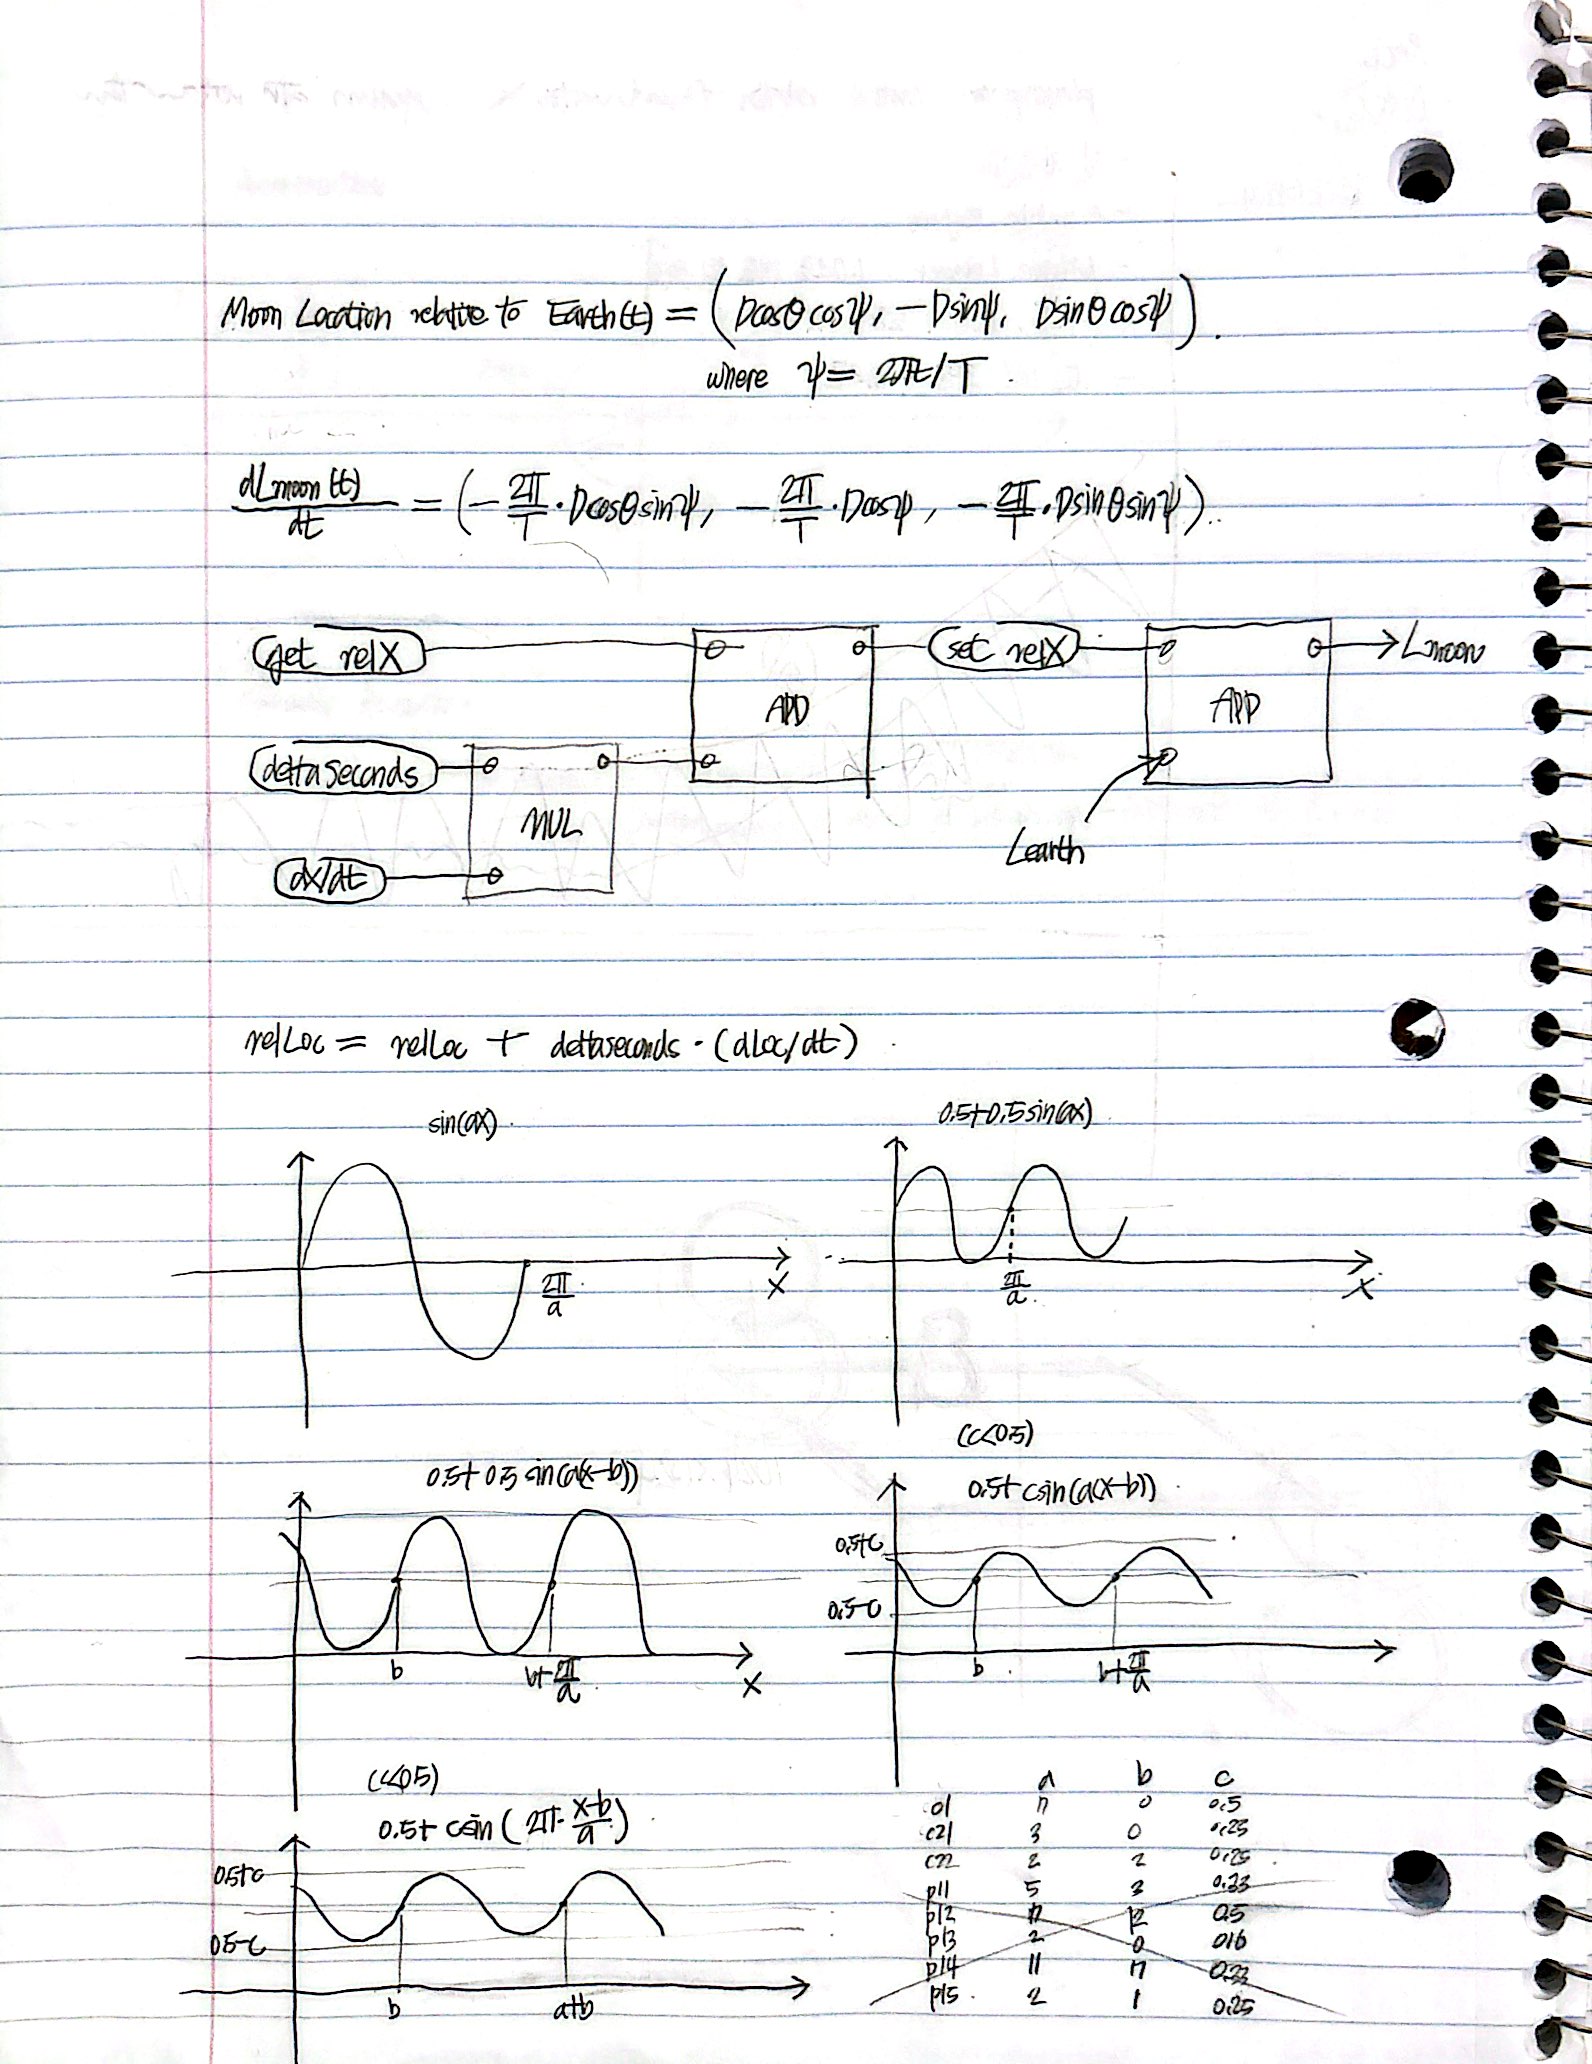 Moon Location relative to Earth(t) = (Dcosθcosψ, -Dsinψ, Dsinθcosψ).
where ψ = 2πt/T.
dLmoon(t)/dt = (-2π/T·Dcosθsinψ, -2π/T·Dcosψ, -2π/T·Dsinθsinψ).
get relX
ADD
set relX
ADD
Lmoon
deltaseconds
MUL
dX/dt
Learth
relLoc = relLoc + deltaseconds·(dLoc/dt).
sin(ax).
2π/a
X
0.5+0.5sin(ax)
2π/a.
X
0.5+0.5sin(a(x-b))
b
b+2π/a.
X
(c<0.5)
0.5+csin(a(x-b)).
0.5+C
0.5-C
b
b+2π/a
(c<0.5)
0.5+csin(2π·x-b/a).
0.5+C
0.5-C
b
a+b
a b c
3 0 0.25
c22 2 2 0.25
p11 5 3 0.33
p13 2 0
p15. 2 1 0.25